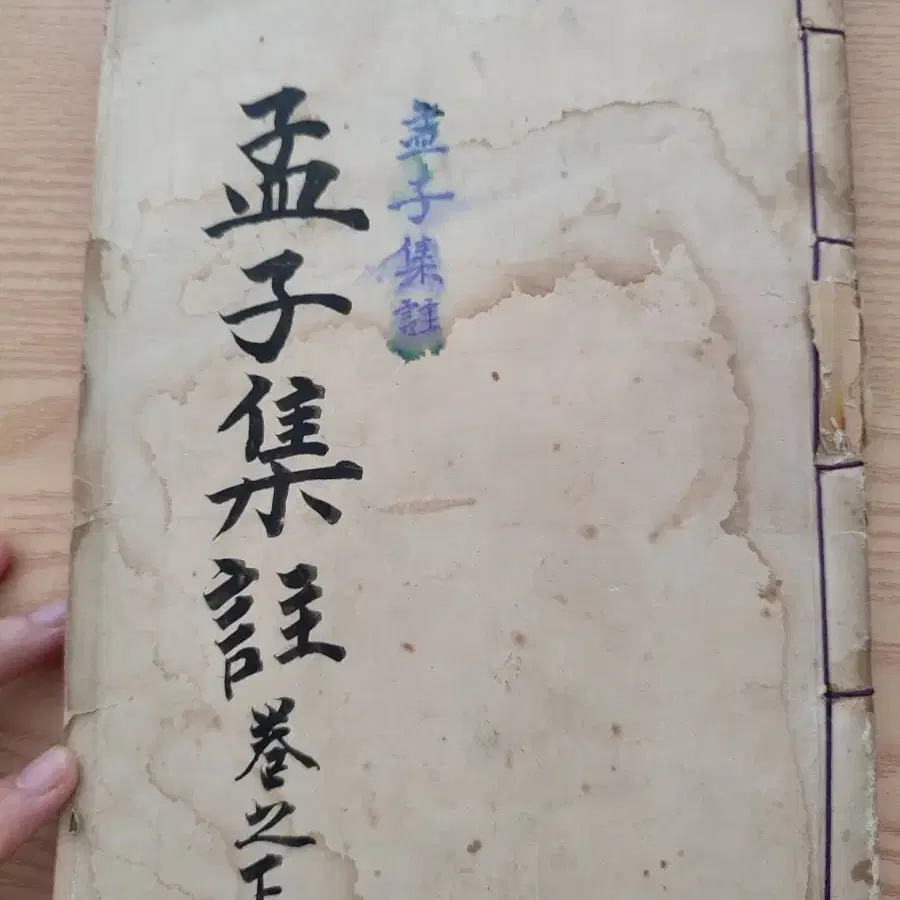 孟子集註
孟子集註卷之下